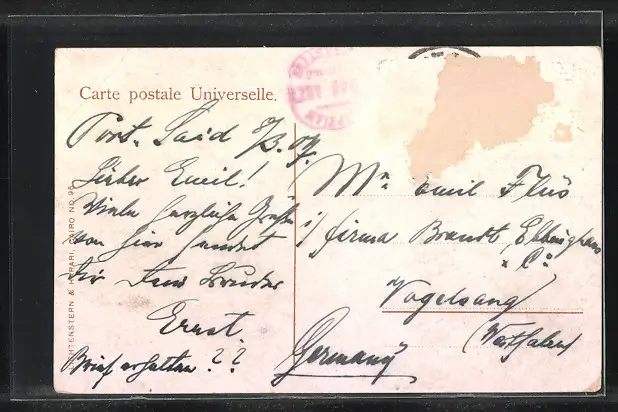 Carte postale Universelle.
Port-Said 8/3.07.
Lieber Emil!
Viele herzliche Grüße
von hier sendet
Dir Dein Bruder
Ernst
Brief erhalten??
Mr. Emil Flüs
i/ firma Brandt, Ebbinghaus
& Co
Vogelsang
(Westfalen)
Germany
LICHTENSTERN & HARARI, CAIRO No 96